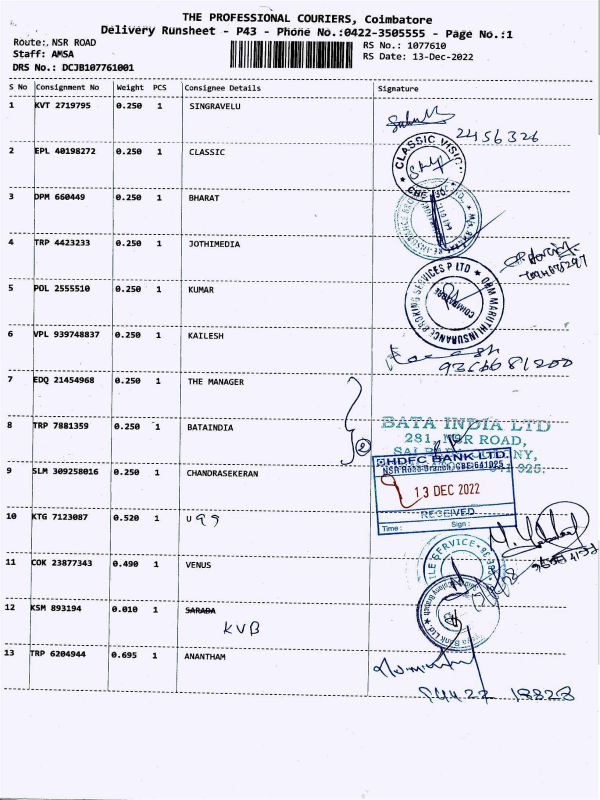 THE PROFESSIONAL COURIERS, Coimbatore
Delivery Runsheet - P43 - Phone No.:0422-3505555 - Page No.:1
Route:, NSR ROAD
RS No.: 1077610
Staff: AMSA
RS Date: 13-Dec-2022
DRS No.: DCJB107761001
S No Consignment No Weight PCS Consignee Details Signature
1 KVT 2719795 0.250 1 SINGRAVELU
2456326
2 EPL 40198272 0.250 1 CLASSIC
CLASSIC VISION
3 DPM 660449 0.250 1 BHARAT
4 TRP 4423233 0.250 1 JOTHIMEDIA
5 POL 2555510 0.250 1 KUMAR
DBM MARUTHI INSURANCE BROKING SERVICES P LTD
COIMBATORE
6 VPL 939748837 0.250 1 KAILESH
7 EDQ 21454968 0.250 1 THE MANAGER
8 TRP 7881359 0.250 1 BATAINDIA
2
BATA INDIA LTD
281, NSR ROAD,
HDFC BANK LTD.
NSR Road Branch, CBE-641025
9 SLM 309258016 0.250 1 CHANDRASEKERAN
13 DEC 2022
RECEIVED
Time: Sign:
10 KTG 7123087 0.520 1 U 99
11 COK 23877343 0.490 1 VENUS
12 KSM 893194 0.010 1 SARADA
KVB
13 TRP 6204944 0.695 1 ANANTHAM